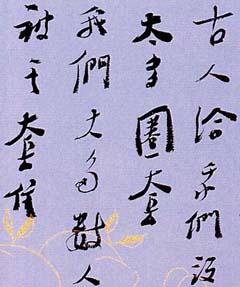 古人給我們設
太多圈套
我們大多數人
被其套住